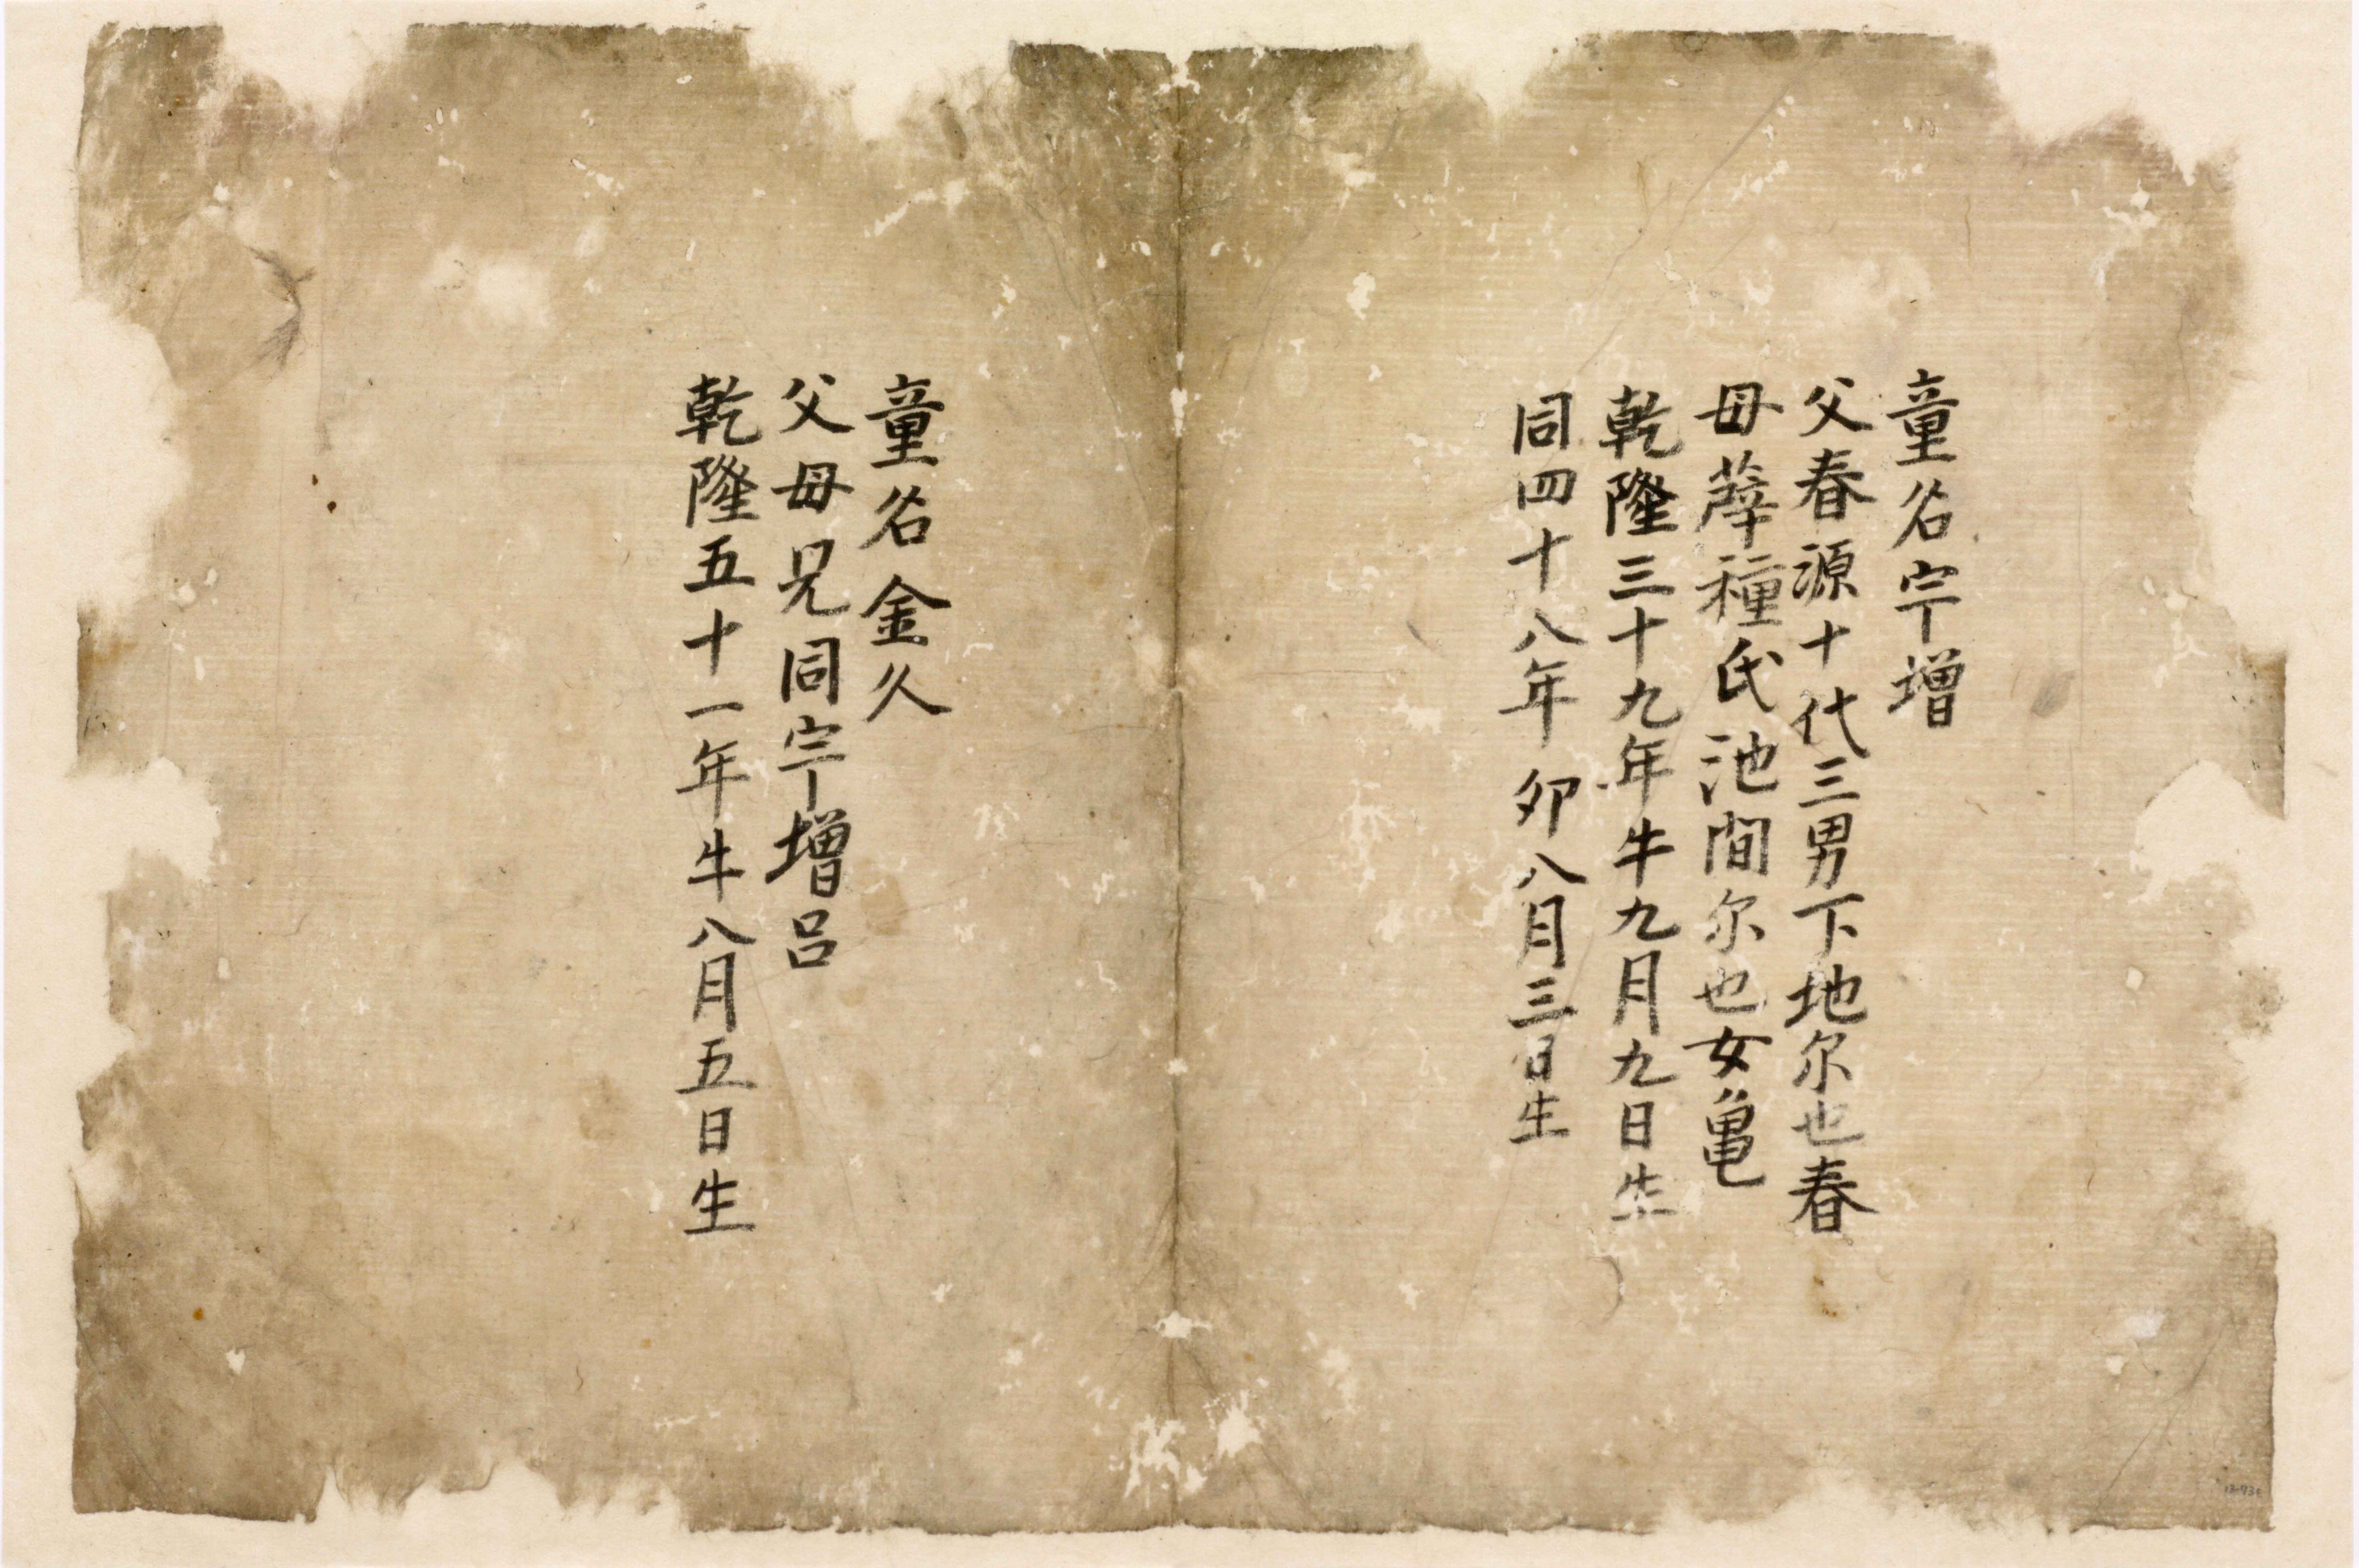 童名宇増
父春源十代三男下地尓也春
母薛種氏池間尓也女亀
乾隆三十九年牛九月九日生
同四十八年卯八月三日生
童名金久
父母兄同宇増呂
乾隆五十一年牛八月五日生